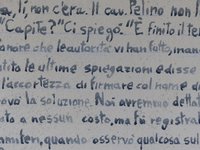 a, lì, non c'era. Il cav. Pelino non l
"Capite?" Ci spiegò. "È finito il te
onore che le autorità vi han fatto, man
tite le ultime spiegazioni e disse
l'accortezza di firmare col nome d
ovò la soluzione. Noi avremmo detta
to a nessun costo, ma fe registra
mmiferi, quando osservò qualcosa sul